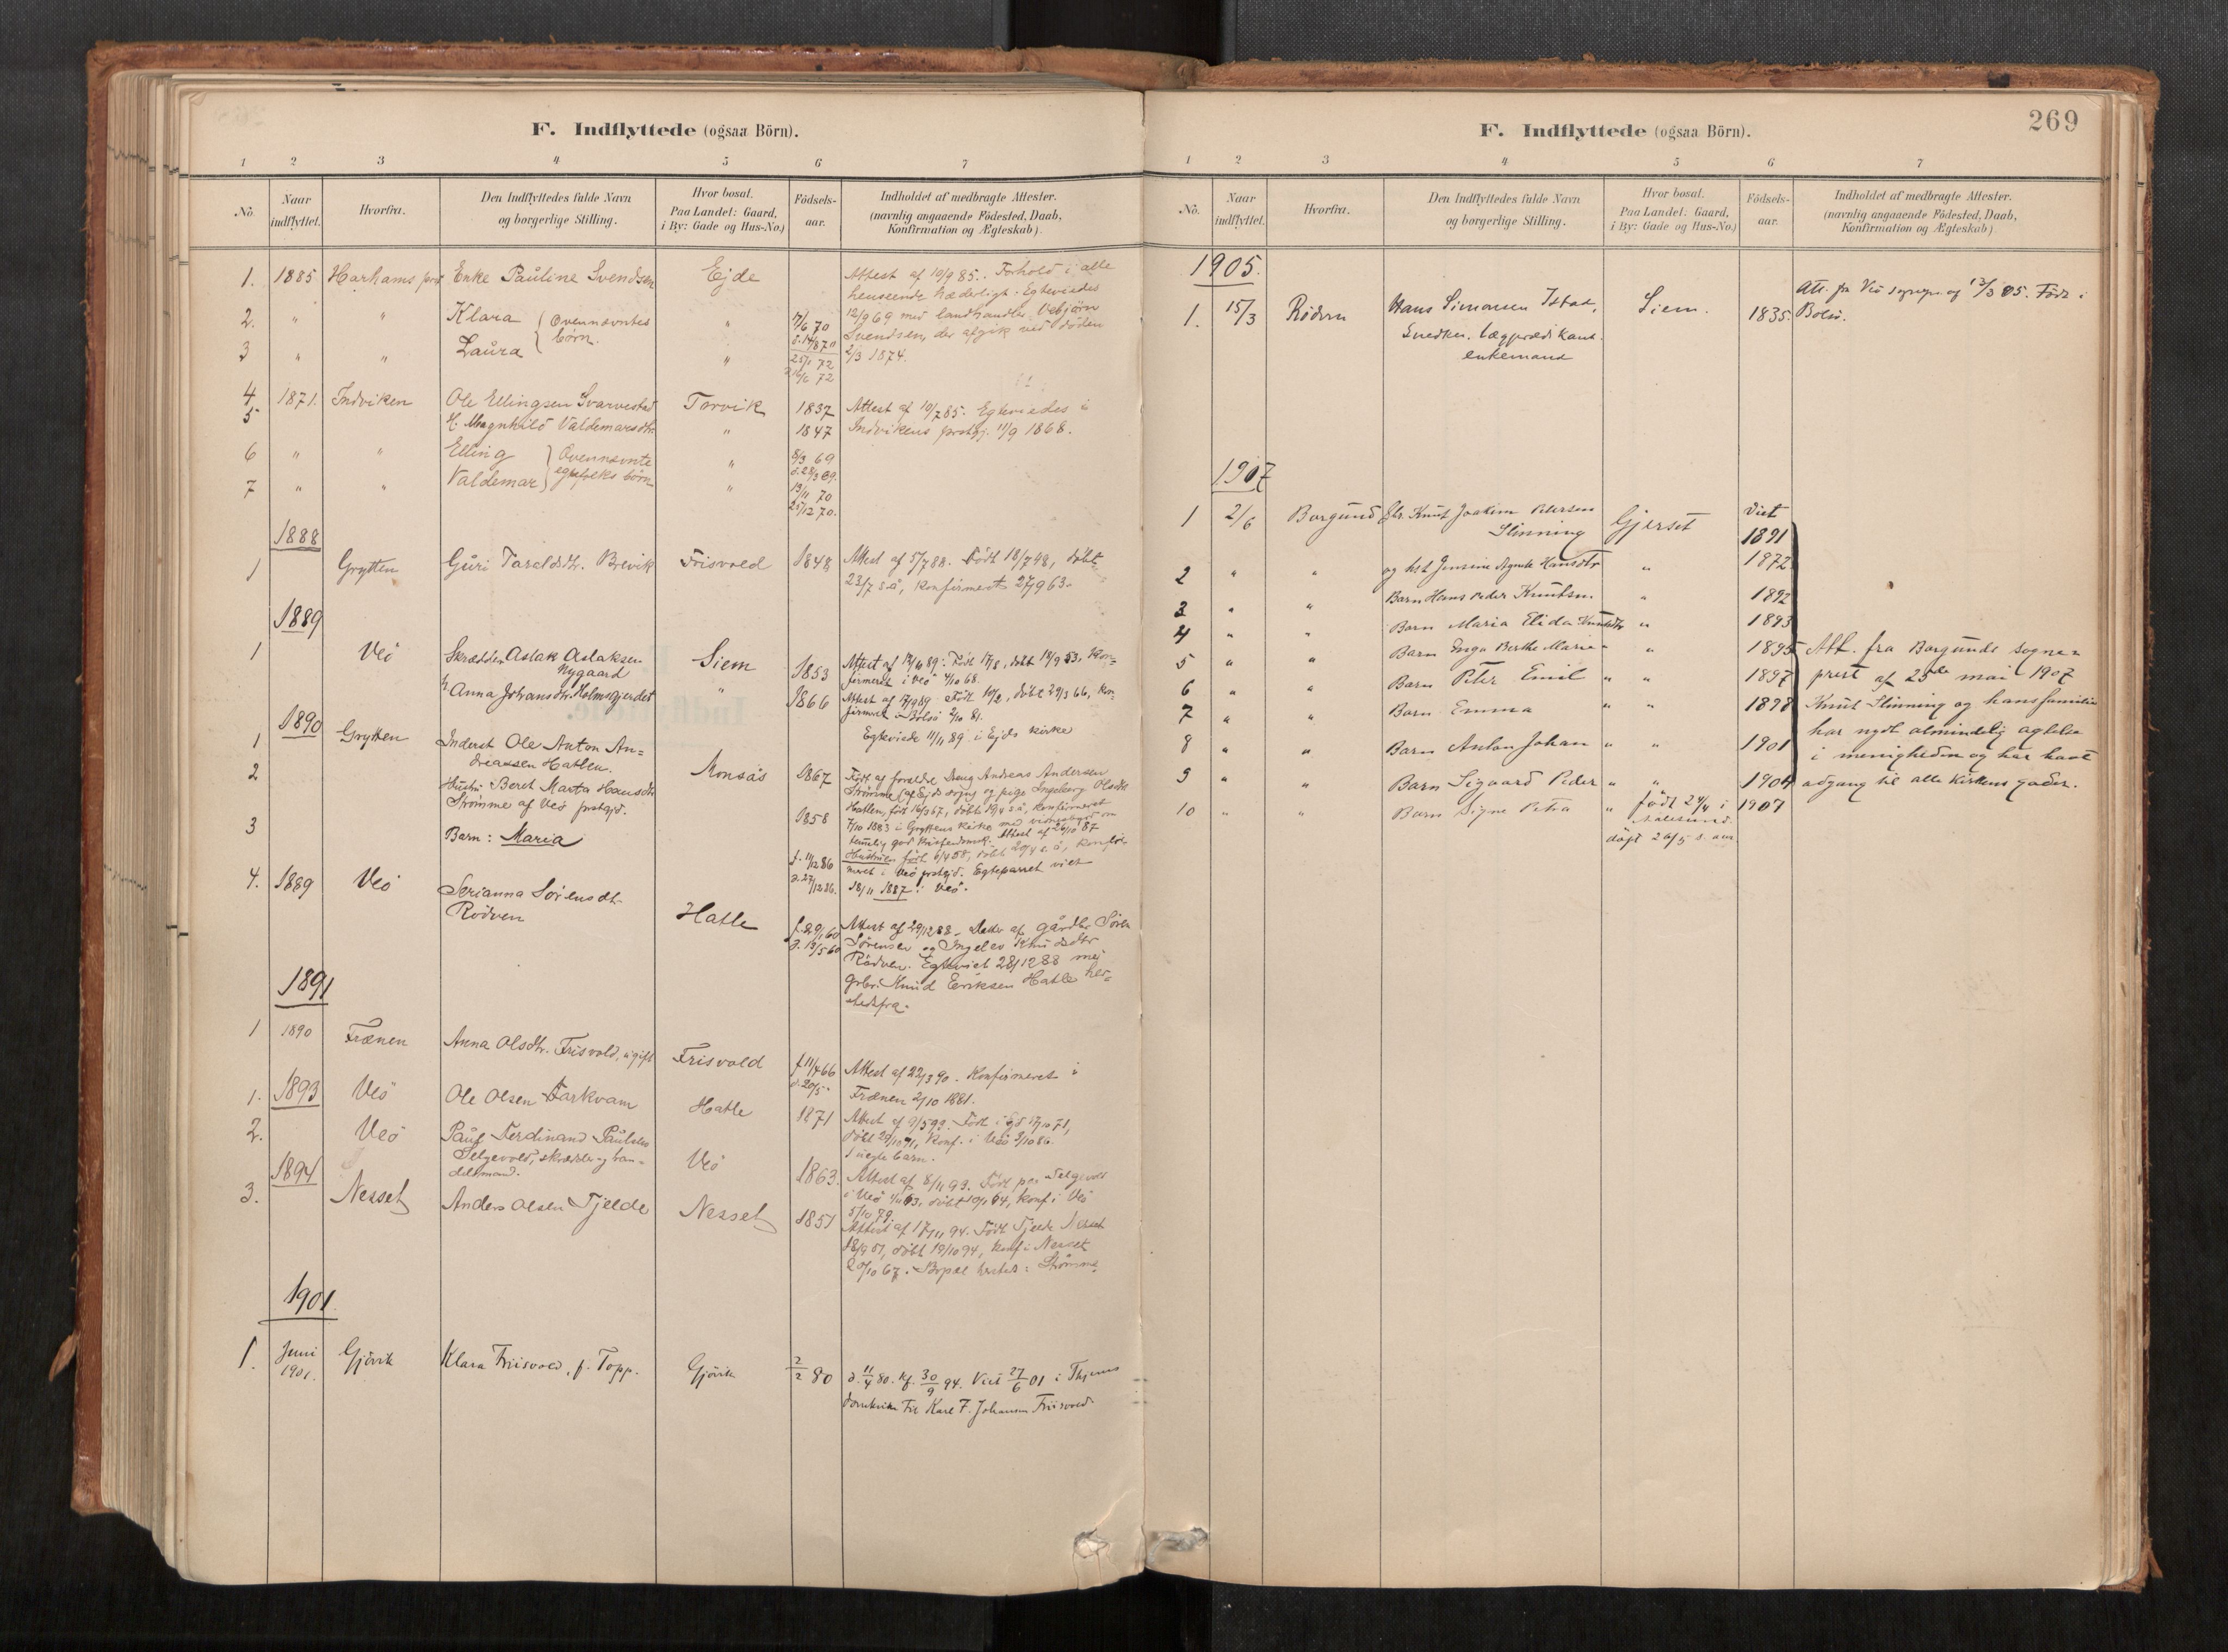 F. Indflyttede (ogsaa Börn).
1 2 3 4 5 6 7
No. Naar indflyttet. Hvorfra. Den Indflyttedes fulde Navn og borgerlige Stilling. Hvor bosat. Paa Landet: Gaard, i By: Gade og Hus-No.) Födsels-aar. Indholdet af medbragte Attester. (navnlig angaaende Födested, Daab, Konfirmation og Ægteskab).
1. 1885 Harhams Enke Pauline Svendsen Ejde Attest af 10/9 85. Forhold i alle
henseende hæderligt. Egteviedes
2. " " Klara } Ovennævntes börn. " 7/6 70 12/9 69 med landhandler Vebjörn
d. 14/8 70 Svendsen, der afgik ved döden
3 " " Laura " 25/1 72 2/3 1874.
4 1871. Indviken Ole Ellingsen Svarvestad Torvik 1837 Attest af 10/7 85. Egteviedes i
5 H. Magnhild Valdemarsdtr. " 1847 Indvikens prstgj. 11/9 1868.
6 " " Elling } Ovennævnte " 8/3 69
d. 28/3 69.
7 " " Valdemar } egtefolks börn " 13/11 70
25/12 70.
1888
1 Grytten Guri Taraldsdtr. Brevik Frisvold 1848 Attest af 5/7 88. Födt 18/7 48, döbt
23/7 s.å, konfirmert 27/9 63.
1889
1 Veö Skrædder Aslak Aslaksen Nygaard Siem 1853 Födt 17/8, döbt 18/9 53, kon=
firmeret i Veö 4/10 68.
h. Anna Johansdtr. Holmsgjerdet " 1866 Attest af 17/9 89 Födt 10/2, döbt 29/3 66, kon-
firmeret i Bolsö 2/10 81.
Egteviede 11/11 89 i Ejds kirke
1890
1 Grytten Inderst Ole Anton An=
dreassen Hatlen. Monsås 1867 Födt af foreldre Dreng Andreas Andersen
Strömme (af Ejds sogn) og pige Ingeborg Olsdtr
2 Hustru Beret Marta Hansdtr Hatlen, födt 16/3 67, döbt 19/4 s.å, konfirmeret
Strömme af Veö prstgjd. 1858 7/10 1883 i Gryttens kirke med vidnesbyrd om
temmelig god kristendomsk. Attest af 26/10 87
3 Barn: Maria f. 11/12 86 Hustruen födt 6/4 58, döbt 20/4 s.å, konfir-
d. 27/12 86. meret i Veö prstgjd. Egteparret viet
18/11 1887 i Veö.
4. 1889 Veö Serianna Sörensdtr
Rödven Hatle f. 29/1 60 Attest af 29/12 88. Datter af gårdbr. Sören
d. 13/5 60 Sörensen og Ingelev Knudsdtr
Rödven. Egteviet 28/12 88 med
grbr. Knud Eriksen Hatle her=
stedsfra.
1891
1 1890 Frænen Anna Olsdtr. Frisvold, ugift Frisvold f. 11/4 66 Attest af 22/3 90. Konfirmeret i
d. 20/5 Frænen 2/10 1881.
1. 1893 Veö Ole Olsen Farkvam Hatle 1871 Födt i Ejd 17/10 71,
döbt 29/10 71, konf. i Veö 3/10 86.
uegte barn.
2. Veö Paul Ferdinand Paulsen
Selgevold, skrædder og han-
delsmand. Veö 1863. Attest af 8/11 93. Födt paa Selgevold
1894 i Veö 1/11 63, döbt 10/1 64, konf i Veö
5/10 79.
3. Nesset Anders Olsen Tjelde Nesset 1851 Attest af 17/11 94. Födt Tjelde Nesset
18/9 51, döbt 19/10 94, konf i Nesset
20/10 67. Bopæl hersteds: Strömme.
1901.
1. Juni 1901. Gjövik Klara Friisvold, f. Topp. Gjövik 2/2 80 d. 11/4 80. kf. 30/9 94. Viet 27/6 01 i
til Karl F. Johansen Friisvold
269
F. Indflyttede (ogsaa Börn).
1 2 3 4 5 6 7
No. Naar indflyttet. Hvorfra. Den Indflyttedes fulde Navn og borgerlige Stilling. Hvor bosat. Paa Landet: Gaard, i By: Gade og Hus-No.) Födsels-aar. Indholdet af medbragte Attester. (navnlig angaaende Födested, Daab, Konfirmation og Ægteskab).
1905.
1. 15/3 Rödven Hans Simonsen Istad, Siem. 1835. Att. fra Veö sognepr. af 13/3 05. Födt i
Bolsö.
Snedker. Lægprædikant.
enkemand
1907
1 2/6 Borgund Gbr. Knut Joakim Petersen
Slinning Gjerset Viet
1891
2 " " og hst Jensine Agnete Hansdtr " 1872
3 " " Barn Hans Peder Knutsen " 1892
4 " " Barn Maria Elida Knutsdtr " 1893
5 " " Barn Enga Berthe Marie " 1895 Att. fra Borgunds sogne=
6 " " Barn Peter Emil " " 1897 prest af 25de mai 1907
7 " " Barn Emma " " 1898 Knut Slinning og hans familie
har nydt almindelig agtelse
8 " " Barn Anton Johan " " 1901 i menigheden og har havt
9 " Barn Sigaard Peder " " 1904 adgang til alle kirkens goder.
10 " " Barn Signe Petra " födt 24/4 i 1907
Aalesund.
döpt 26/5 s. aar